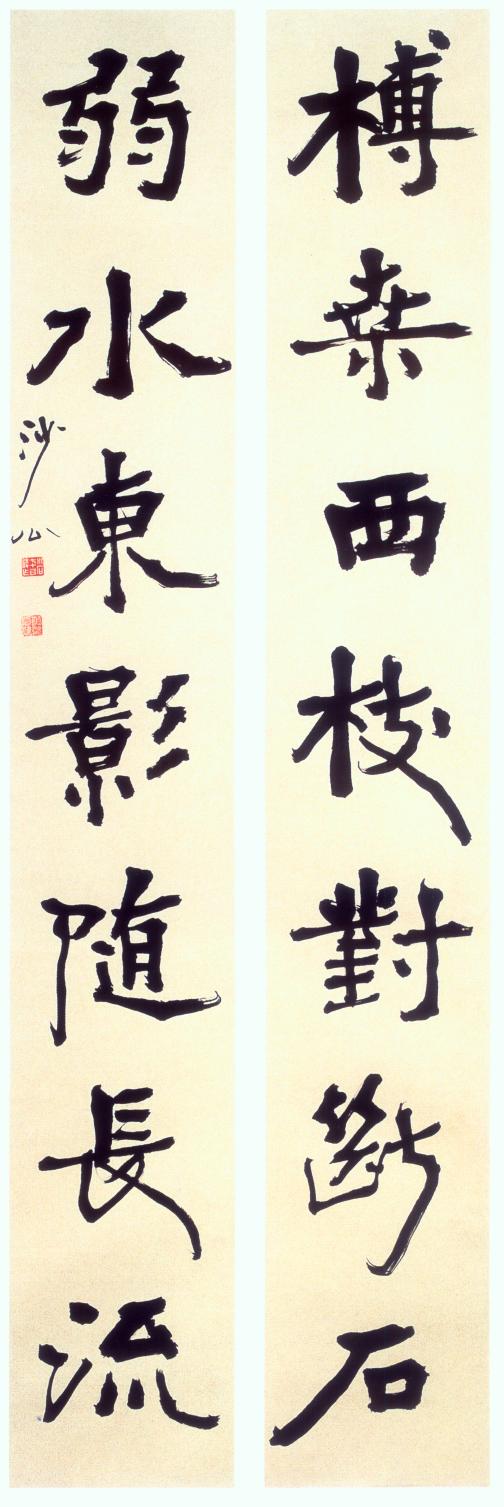 榑桒西枝對斷石
弱水東影随長流
沙公